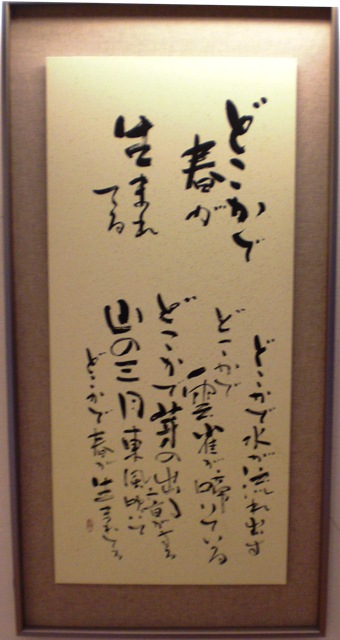 どこかで
春が
生まれ
てる
どこかで水が流れ出す
どこかで
雲雀が啼いている
どこかで芽の出る
音がする
山の三月東風吹いて
どこかで春が生まれてる